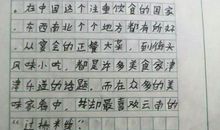 。在中国这个注重饮食的国家
，东西南北个个地方都有所好
，从宴会的正餐大菜，到街头
风味小吃，都是许多美食家津
津乐道的话题，而在众多的美
味家肴中，我却最喜欢云南的
“过桥米线”